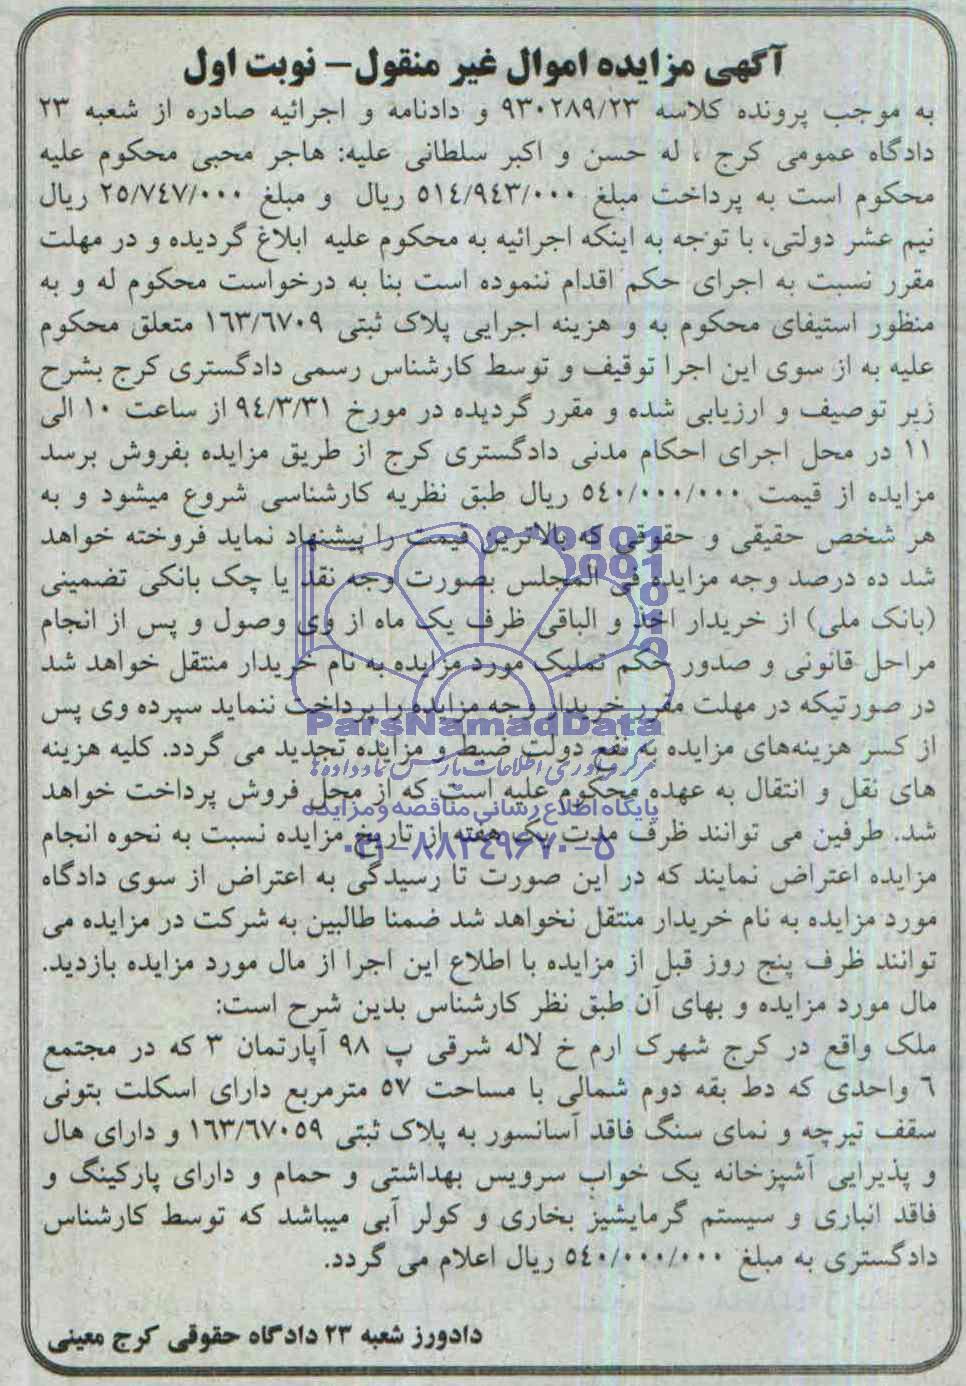 آگهی مزایده اموال غیر منقول – نوبت اول
به موجب پرونده کلاسه ۹۳۰۲۸۹/۲۳ و دادنامه و اجرائیه صادره از شعبه ۲۳
دادگاه عمومی کرج ، له حسن و اکبر سلطانی علیه: هاجر محبی محکوم علیه
محکوم است به پرداخت مبلغ ۵۱۴/۹۴۳/۰۰۰ ریال و مبلغ ۲۵/۷۴۷/۰۰۰ ریال
نیم عشر دولتی، با توجه به اینکه اجرائیه به محکوم علیه ابلاغ گردیده و در مهلت
مقرر نسبت به اجرای حکم اقدام ننموده است بنا به درخواست محکوم له و به
منظور استیفای محکوم به و هزینه اجرایی پلاک ثبتی ۱۶۳/۶۷۰۹ متعلق محکوم
علیه به از سوی این اجرا توقیف و توسط کارشناس رسمی دادگستری کرج بشرح
زیر توصیف و ارزیابی شده و مقرر گردیده در مورخ ۹۴/۳/۳۱ از ساعت ۱۰ الی
۱۱ در محل اجرای احکام مدنی دادگستری کرج از طریق مزایده بفروش برسد
مزایده از قیمت ۵۴۰/۰۰۰/۰۰۰ ریال طبق نظریه کارشناسی شروع میشود و به
هر شخص حقیقی و حقوقی که بالاترین قیمت را پیشنهاد نماید فروخته خواهد
شد ده درصد وجه مزایده فی المجلس بصورت وجه نقد یا چک بانکی تضمینی
(بانک ملی) از خریدار اخذ و الباقی ظرف یک ماه از وی وصول و پس از انجام
مراحل قانونی و صدور حکم تملیک مورد مزایده به نام خریدار منتقل خواهد شد
در صورتیکه در مهلت مقرر خریدار وجه مزایده را پرداخت ننماید سپرده وی پس
ParsNamadData
از کسر هزینه‌های مزایده به نفع دولت ضبط و مزایده تجدید می گردد. کلیه هزینه
مرکز فرآوری اطلاعات پارس نماد داده‌ها
های نقل و انتقال به عهده محکوم علیه است که از محل فروش پرداخت خواهد
پایگاه اطلاع رسانی مناقصه و مزایده
شد. طرفین می توانند ظرف مدت یک هفته از تاریخ مزایده نسبت به نحوه انجام
۰۲۱-۸۸۳۴۹۶۷۰-۵
مزایده اعتراض نمایند که در این صورت تا رسیدگی به اعتراض از سوی دادگاه
مورد مزایده به نام خریدار منتقل نخواهد شد ضمنا طالبین به شرکت در مزایده می
توانند ظرف پنج روز قبل از مزایده با اطلاع این اجرا از مال مورد مزایده بازدید.
مال مورد مزایده و بهای آن طبق نظر کارشناس بدین شرح است:
ملک واقع در کرج شهرک ارم خ لاله شرقی پ ۹۸ آپارتمان ۳ که در مجتمع
۶ واحدی که دط بقه دوم شمالی با مساحت ۵۷ مترمربع دارای اسکلت بتونی
سقف تیرچه و نمای سنگ فاقد آسانسور به پلاک ثبتی ۱۶۳/۶۷۰۵۹ و دارای هال
و پذیرایی آشپزخانه یک خواب سرویس بهداشتی و حمام و دارای پارکینگ و
فاقد انباری و سیستم گرمایشیز بخاری و کولر آبی میباشد که توسط کارشناس
دادگستری به مبلغ ۵۴۰/۰۰۰/۰۰۰ ریال اعلام می گردد.
دادورز شعبه ۲۳ دادگاه حقوقی کرج معینی